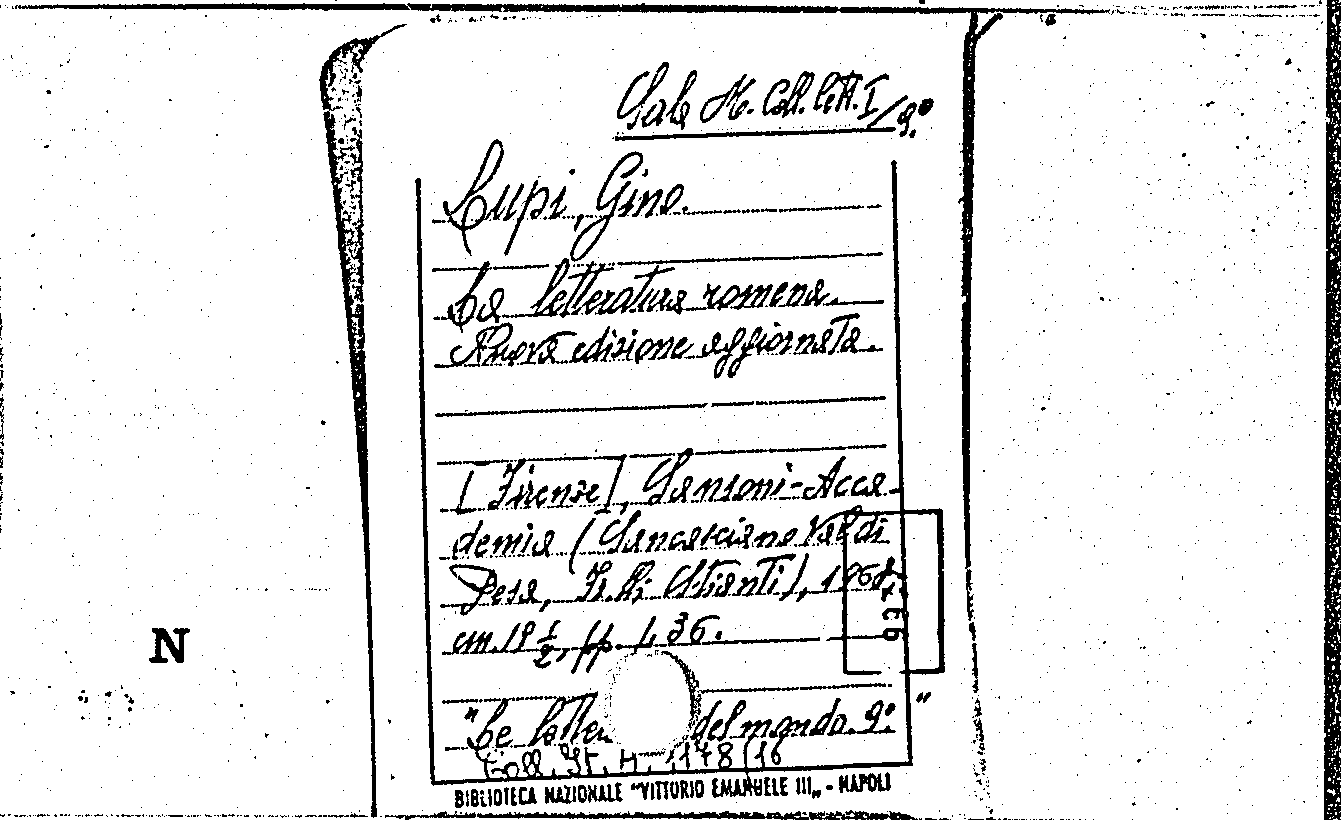 Sala M. Coll. lett. I/9.°
Lupi, Gino.
La letteratura romena.
Nuova edizione aggiornata.
[Firenze], Sansoni-Acca-
demia (Sancasciano Val di
Pesa, F.lli Stianti), 1968
cm. 19 1/2, pp. 436.
"Le lette del mondo. 9.° "
Coll. It. 4. 1178/16
BIBLIOTECA NAZIONALE "VITTORIO EMANUELE III„ - NAPOLI
N